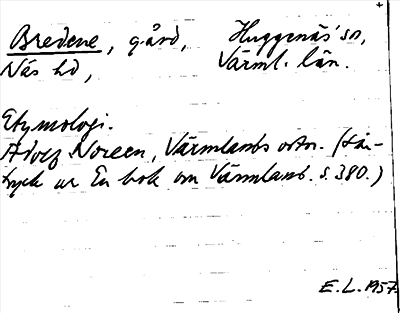 Bredene, gård, Huggenäs sn,
Näs hd, Värml. län.
Etymologi.
Adolf Noreen, Värmlands ortn. (Sär-
tryck ur En bok om Värmland. s. 380.)
E. L. 1957.